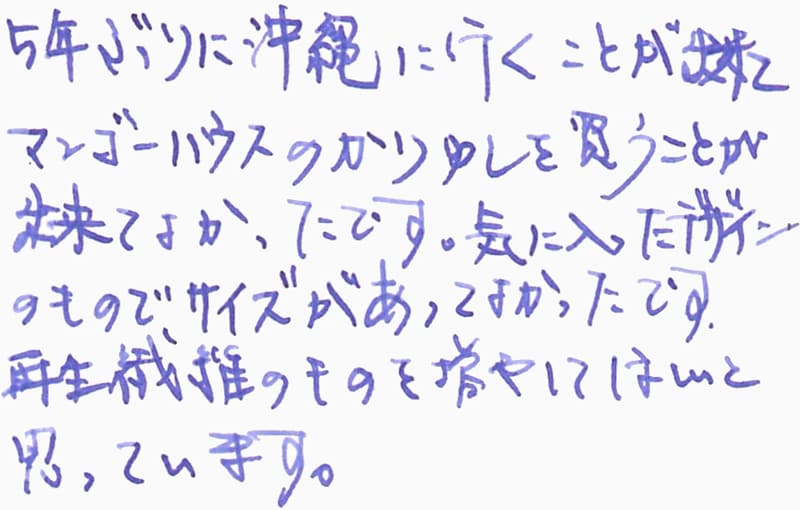 5年ぶりに沖縄に行くことが出来て
マンゴーハウスのかりゆしを買うことが
出来てよかったです。気に入ったデザイン
のものでサイズがあってよかったです.
再生繊維のものを増やしてほしいと
思っています。